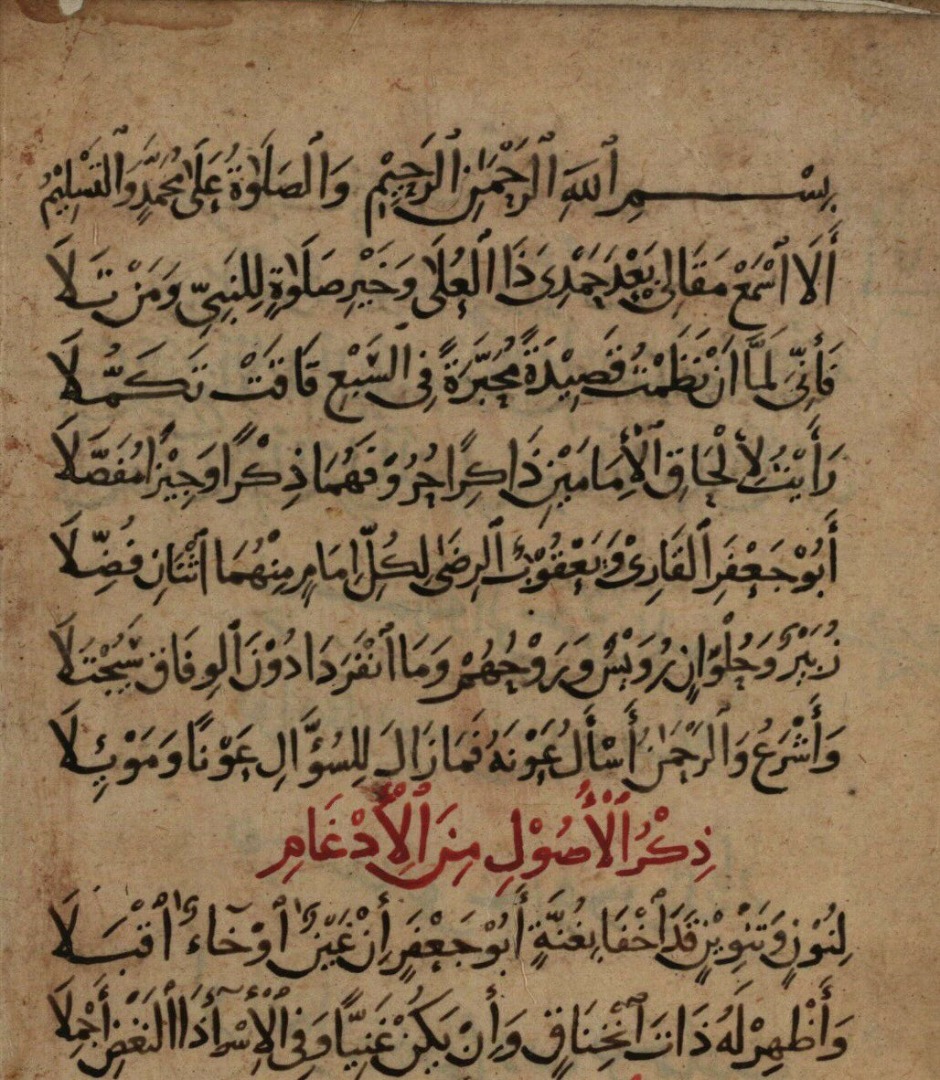 بِسْمِ ٱللَّهِ ٱلرَّحْمٰنِ ٱلرَّحِيْمِ وَٱلصَلَوٰةُ عَلَى مُحَمَّدٍ وَٱلتَسْلِيْمُ
أَلَا ٱسْمَعْ مَقَالِي بَعْدَ حَمْدِىَ ذَا ٱلعُلَى وَخَيْرِ صَلَوٰةٍ لِلنَبِيِّ وَمَنْ تَلَا
فَأَنِّي لَمَّا اَنْ نَظَمْتُ قَصِيْدَةً مُحَبَّرَةً فِي ٱلسَّبْعِ فَاقَتْ تَكَمُّلَا
رَأَيْتُ لِأَلْحَاقِ ٱلْأِمَامَيْنِ ذَاكِرًا حُرُوْفَهُمَا ذِكْرًا وَجِيْزًا مُفَصَّلَا
أَبُوْ جَعْفَرَ ٱلقَارِيْ وَيَعْقُوْبُ ٱلرِضَى لِكُلِّ اِمَامٍ مِنْهُمَا ٱثْنَانِ فُضِّلَا
زُبَيْرٌ وَحُلْوَانٍ رُوَيْسٌ وَرَوْحُهُمْ وَمَا ٱنْفَرَدَا دُوْنَ ٱلوِفَاقِ سَيُجْتَلَا
وَأَشْرَعُ وَٱلرَّحْمٰنَ أَسْأَلُ عَوْنَهُ فَمَا زَالَ لِلسُؤَّالِ عَوْنًا وَمَوْئِلَا
ذِكْرُ ٱلْأُصُوْلِ مِنَ ٱلْأِدْغَامِ
لِنُوْنٍ وَتَنْوِيْنٍ قَدَ ٱخْفَا بِغُنَّةٍ أَبُوْ جَعْفَرٍ أِنْ غَيْنٌ ٱوْ خَاءٌ ٱقْبَلَا
وَأَظْهِرْ لَهُ ذَاتَ ٱنْخِنَاقٍ وَأِنْ يَكُنْ غَنِيًّا وَفِي ٱلْأِسْرَا ذَا ٱلنَغْضِ أَجْمِلَا